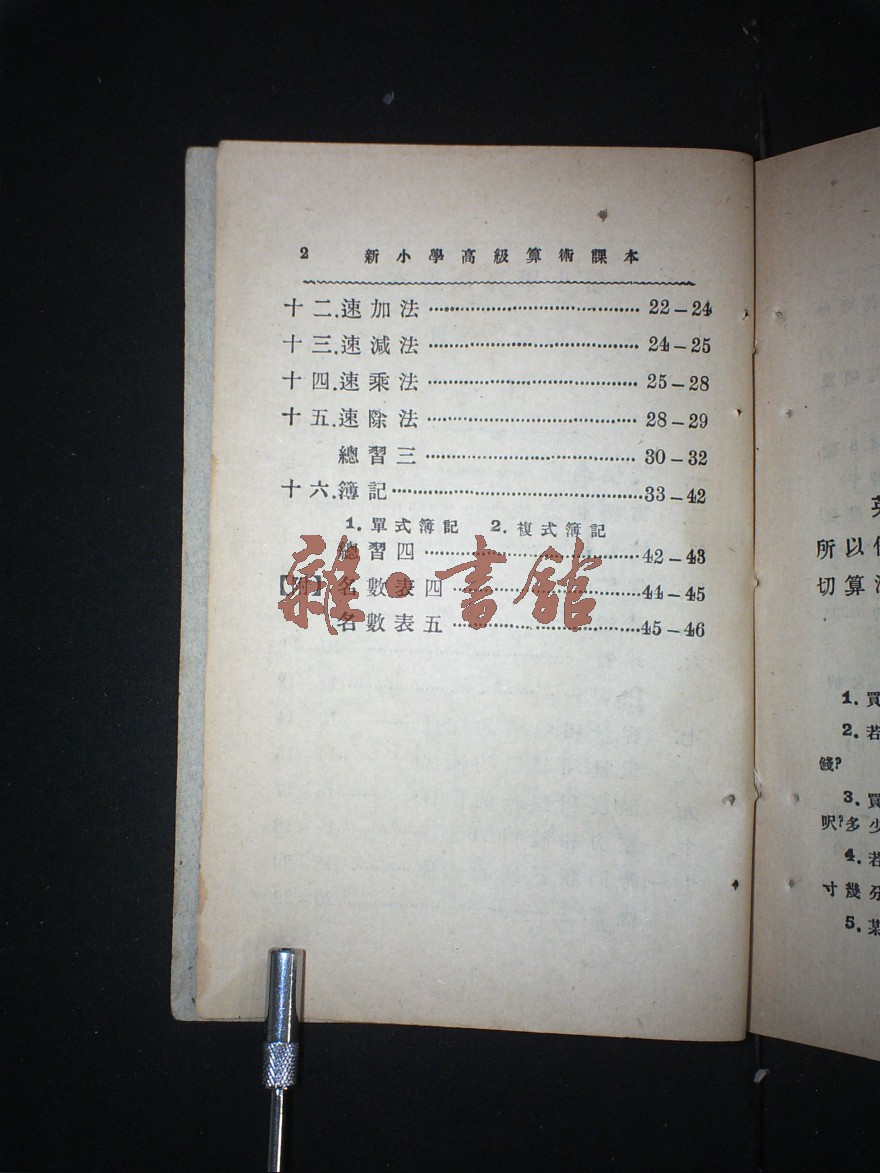 2 新小學高級算術課本
十二.速加法 22–24
十三.速減法 24–25
十四.速乘法 25–28
十五.速除法 28–29
總習三 30–32
十六.簿記 33–42
1. 單式簿記 2. 複式簿記
總習四 42–43
【附】名數表四 44–45
名數表五 45–46
雜·書館
所以
切算
1. 買
2. 若
錢?
3. 買
呎?多少
4. 若
寸幾分
5. 某